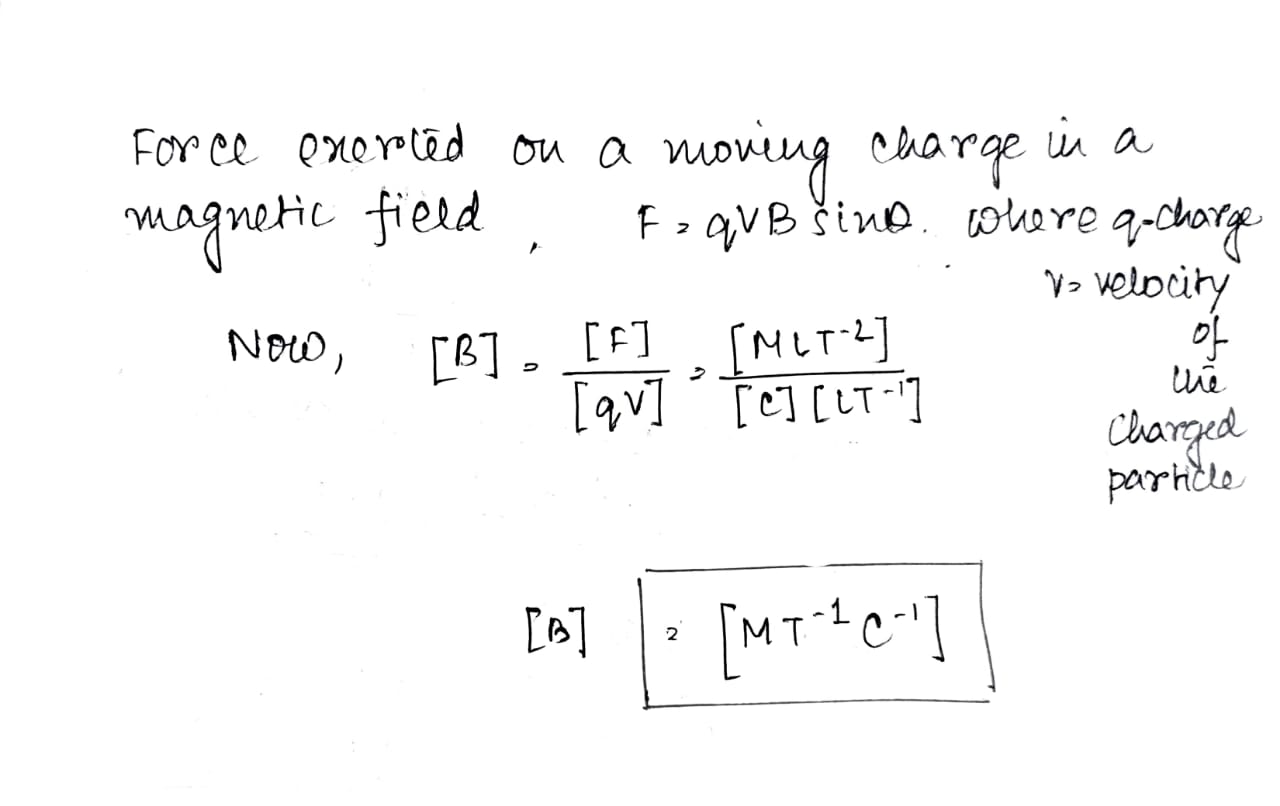 Force exerted on a moving charge in a
magnetic field, F = qVB sinθ. where q-charge
v = velocity
of
the
charged
particle
Now, [B] = [F] / [qV] = [MLT-2] / [C] [LT-1]
[B] = [MT-1 C-1]